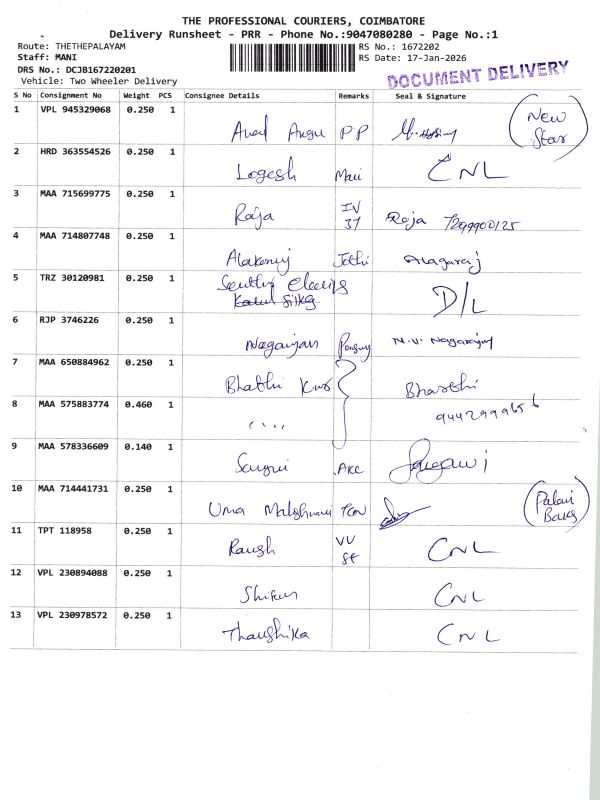 THE PROFESSIONAL COURIERS, COIMBATORE
Delivery Runsheet - PRR - Phone No.:9047080280 - Page No.:1
Route: THETHEPALAYAM
RS No.: 1672202
Staff: MANI
RS Date: 17-Jan-2026
DRS No.: DCJB167220201
DOCUMENT DELIVERY
Vehicle: Two Wheeler Delivery
S No Consignment No Weight PCS Consignee Details Remarks Seal & Signature
1 VPL 945329068 0.250 1
PP
(New Star)
2 HRD 363554526 0.250 1
Logesh CNL
3 MAA 715699775 0.250 1
Raja IV 37 Raja 7299900125
4 MAA 714807748 0.250 1
Jothi Alagaraj
5 TRZ 30120981 0.250 1
D/L
6 RJP 3746226 0.250 1
Nagarajan N.V. Nagarajan
7 MAA 650884962 0.250 1
Bharthi
8 MAA 575883774 0.460 1
" 9442999656
9 MAA 578336609 0.140 1
AKC
10 MAA 714441731 0.250 1
Uma
(Palani
11 TPT 118958 0.250 1
VV St CNL
12 VPL 230894088 0.250 1
CNL
13 VPL 230978572 0.250 1
Thaushika CNL